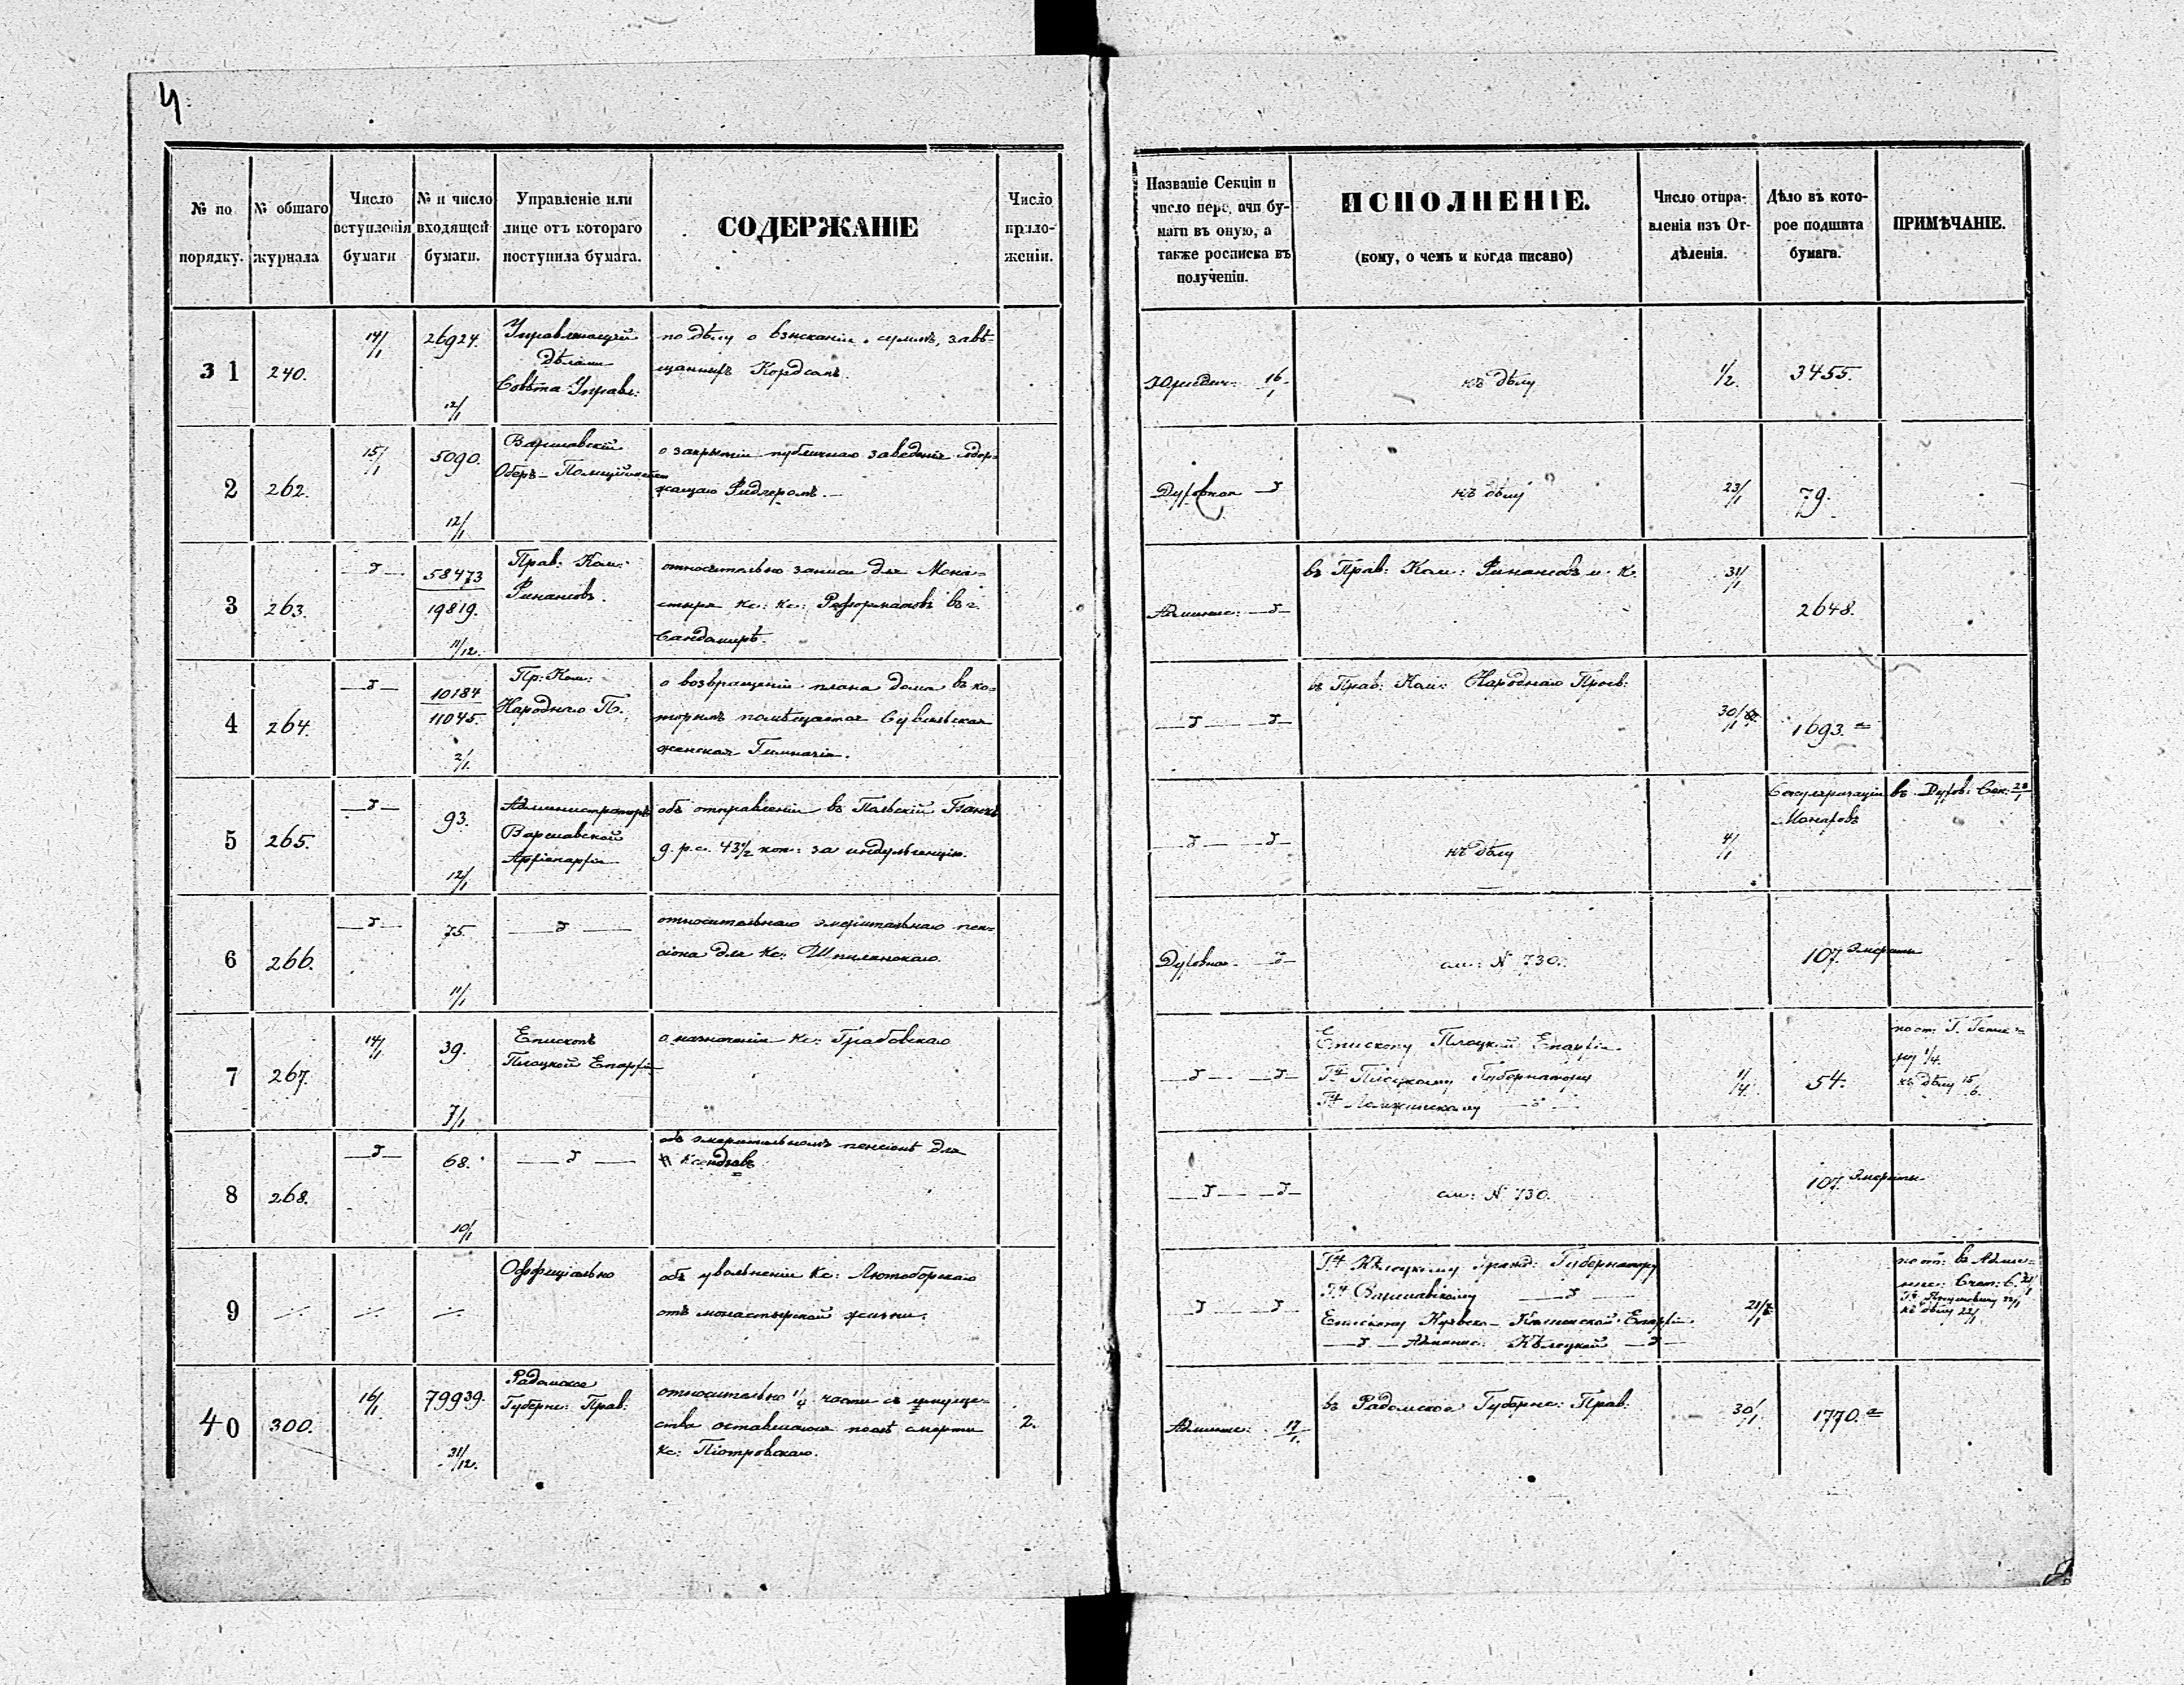 4.
№ по порядку.
№ общаго журнала
Число вступленія бумаги
№ и число входящей бумаги.
Управленіе или лице отъ котораго поступила бумага.
СОДЕРЖАНІЕ
Число прило-женіи.
Названіе Секціи и число пере. ачи бу-маги въ оную, а также росписка въ полученіи.
ИСПОЛНЕНІЕ.
(кому, о чемъ и когда писано)
Число отпра-вленія изъ От-дѣленія.
Дѣло въ кото-рое подшита бумага.
ПРИМѢЧАНІЕ.
31
240.
14/1
26924.
12/1
Управляющій
дѣлами
Совѣта Управл:
по дѣлу о взысканіи суммъ, завѣ-
щанныхъ
Юридич: 16/1
къ дѣлу
1/2.
3455.
2
262.
15/1
5090.
12/1
Варшавскій
Оберъ-Полиційместеръ
о закрытіи публичнаго заведенія содер-
жащаго Ридлеромъ.
Духовная
къ дѣлу
23/1
79.
3
263.
58473
19819.
11/12.
Прав: Ком:
Финансовъ.
относительно записи для Мона-
стыря Кс: Кс: Реформатовъ въ г.
Сандомирѣ.
Админис:
въ Прав: Ком: Финансовъ и К.
31/1
2648.
4
264.
10184
11045.
2/1.
Пр: Ком:
Народнаго П.
о возвращеніи плана дома въ ко-
торомъ помѣщается Сувальская
женская Гимназія.
въ Прав: Ком: Народнаго Просв:
30/1
1693. а
5
265.
93.
12/1
Администраторъ
Варшавской
Архіепархіи
объ отправленіи въ Польскій Банкъ
9. р. с. 43 1/2 коп: за индульгенцію.
къ дѣлу
4/1
Секуляризаціи
Монаховъ
въ Духов: Сек: 28/1
6
266.
75.
11/1
относительнаго эмеритальнаго пен-
сіона для Кс: Шпилянскаго.
Духовная
см: N 730.
107. Эмериты
7
267.
14/1
39.
7/1
Епископъ
Плоцкой Епархіи
о назначеніи Кс: Грабовскаго
Епископу Плоцкой Епархіи
Гну Плоцкому Губернатору
Гну Ломжинскому
1/4.
54.
1/4.
къ дѣлу 15/6.
8
268.
68.
10/1
объ эмеритальномъ пенсіонѣ для
Ксендзовъ
см: N 730.
107. Эмериты
9
Оффиціально
объ увольненіи Кс: Лютоборскаго
отъ монастырской жизни.
Гну Кѣлецкому Гражд: Губернатору
Гну Варшавскому
Епископу Куявско-Калишской Епархіи
Админис: Кѣлецкой
21/1
къ дѣлу 22/1
40
300.
16/1
79939.
31/12.
Радомское
Губернс: Прав:
относительно 1/4 части съ имуще-
ства оставшагося послѣ смерти
Кс: Піотровскаго.
2.
Админис: 17/1.
въ Радомское Губернс: Прав.
30/1
1770. а